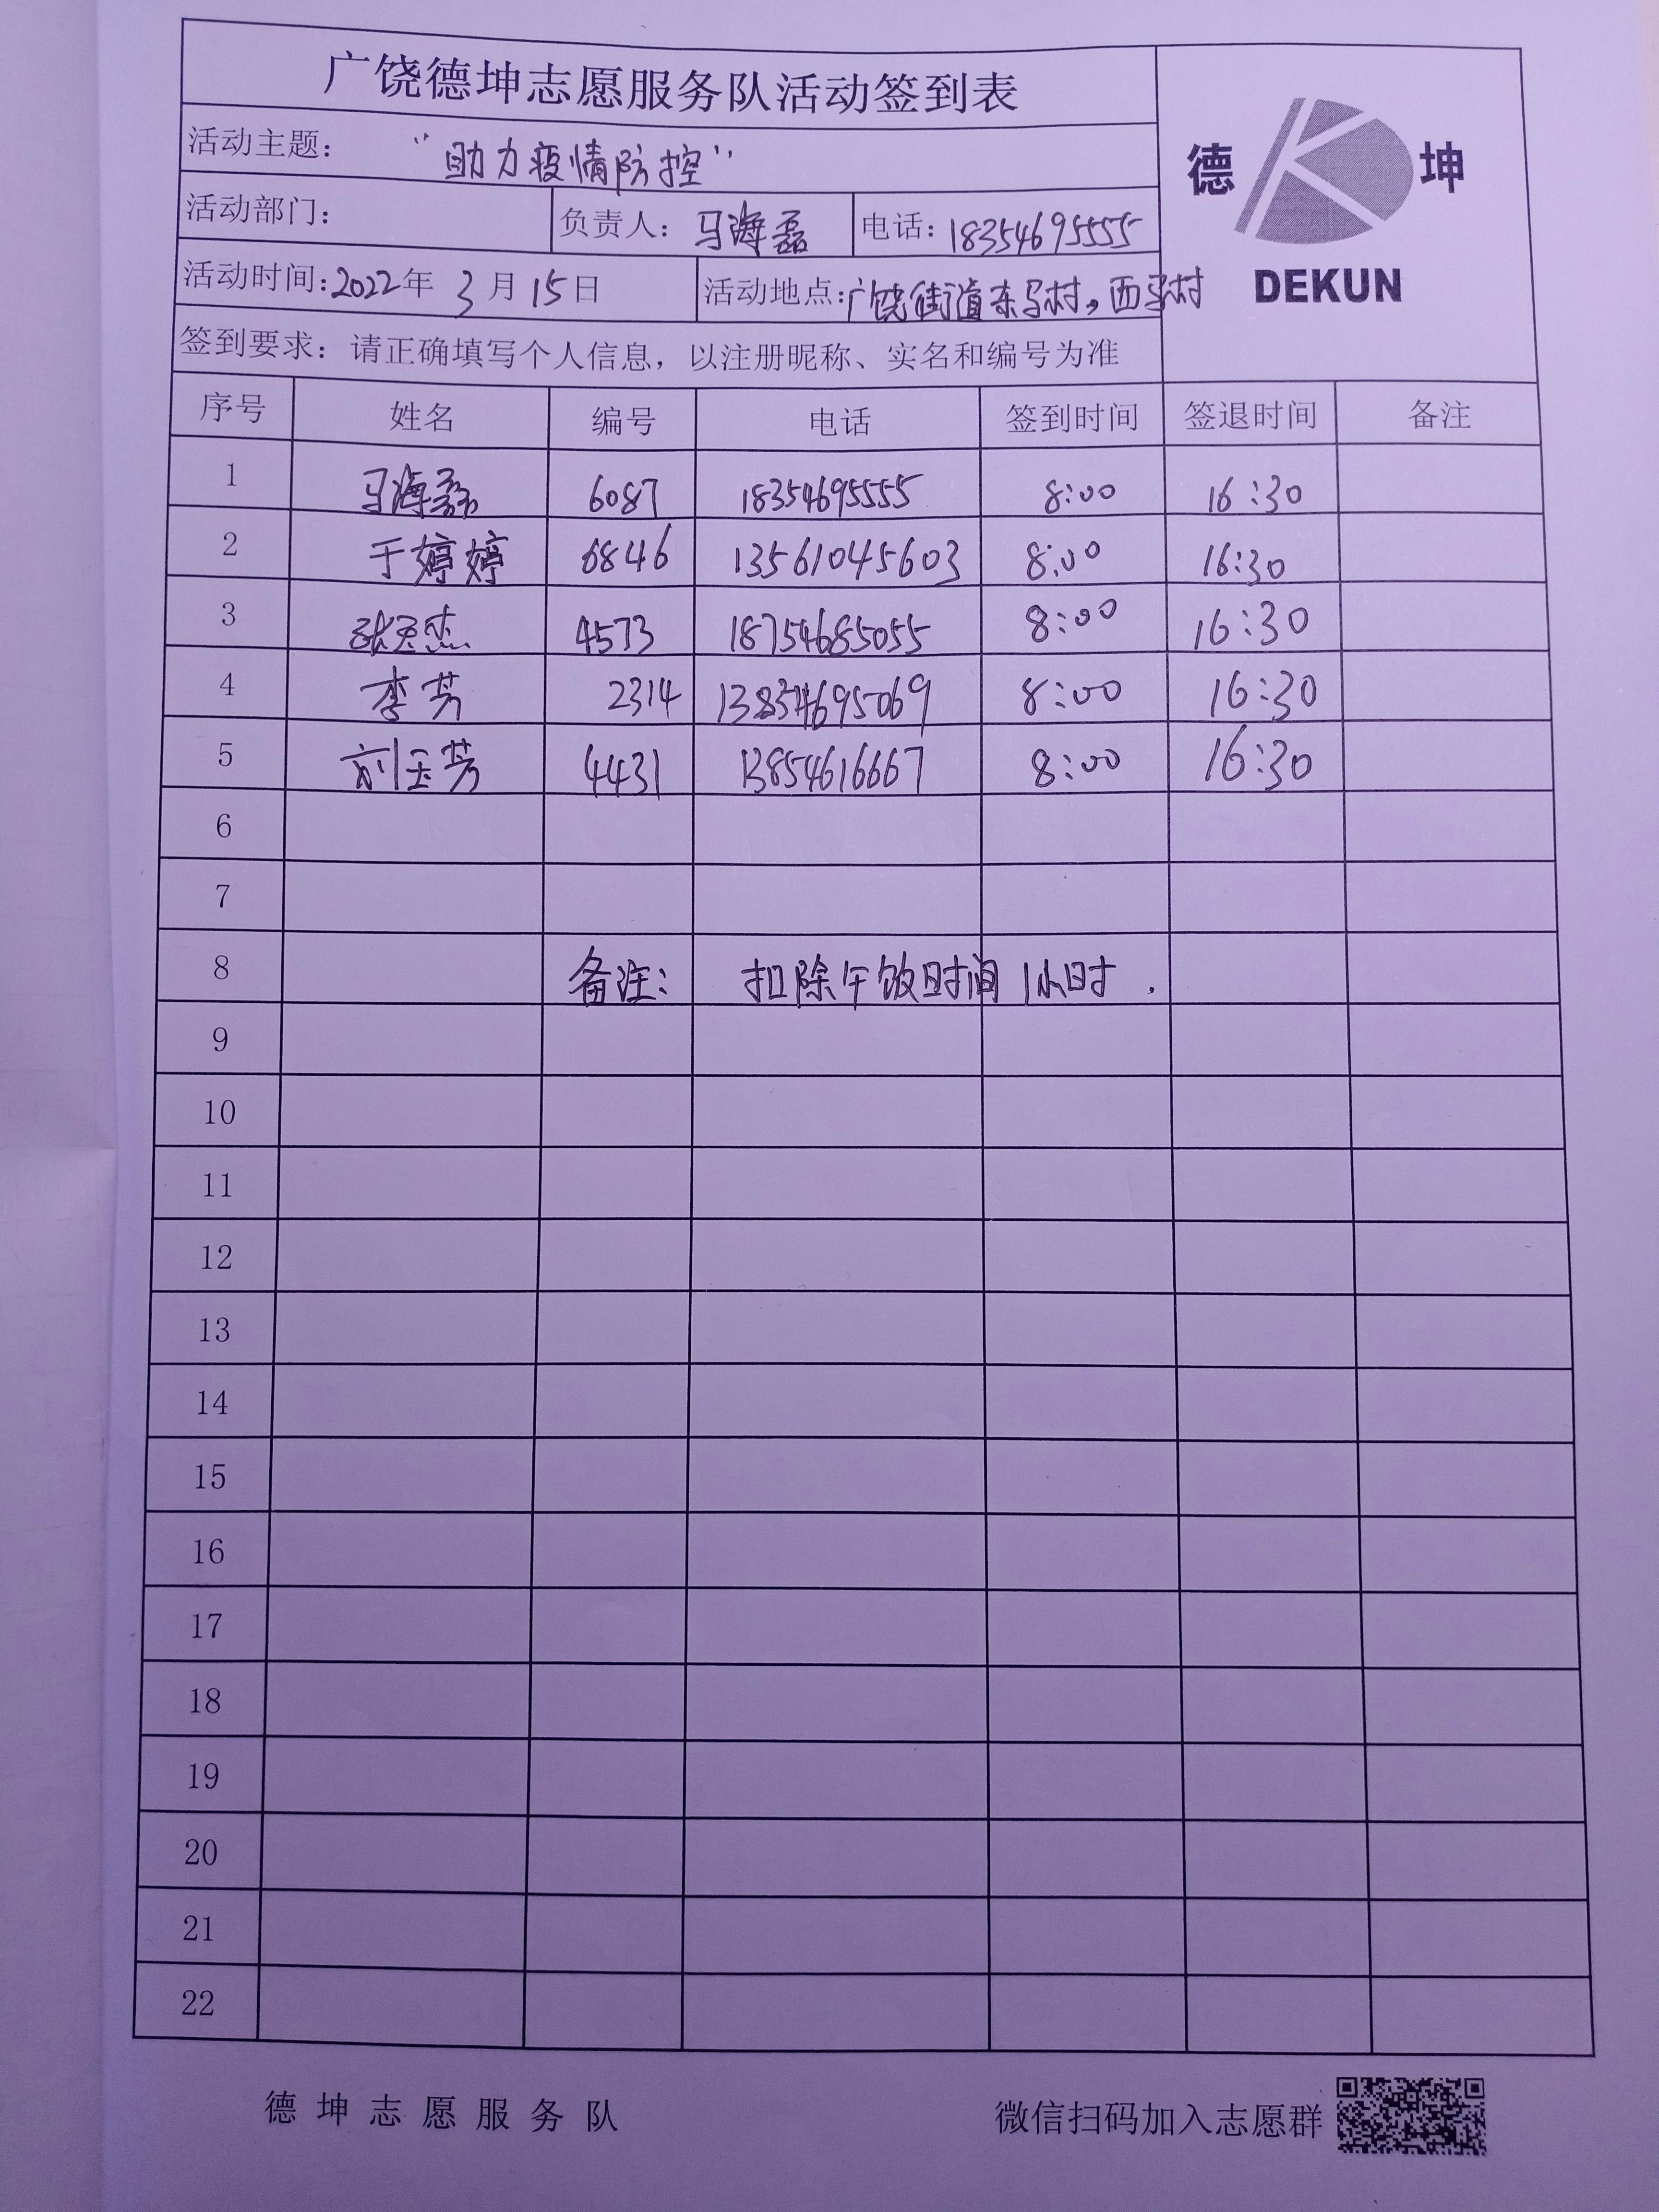 广饶德坤志愿服务队活动签到表
德 坤
DEKUN
活动主题： “助力疫情防控”
活动部门： 负责人：马海磊 电话：18354695555
活动时间：2022年 3月 15日 活动地点：广饶街道东马村，西马村
签到要求：请正确填写个人信息，以注册昵称、实名和编号为准
序号 姓名 编号 电话 签到时间 签退时间 备注
1 马海磊 6087 18354695555 8:00 16:30
2 于婷婷 6846 13561045603 8:00 16:30
3 4573 18754685055 8:00 16:30
4 李芳 2314 8:00 16:30
5 刘玉芳 4431 13854616667 8:00 16:30
6
7
8 备注： 扣除午饭时间1小时.
9
10
11
12
13
14
15
16
17
18
19
20
21
22
德坤志愿服务队 微信扫码加入志愿群